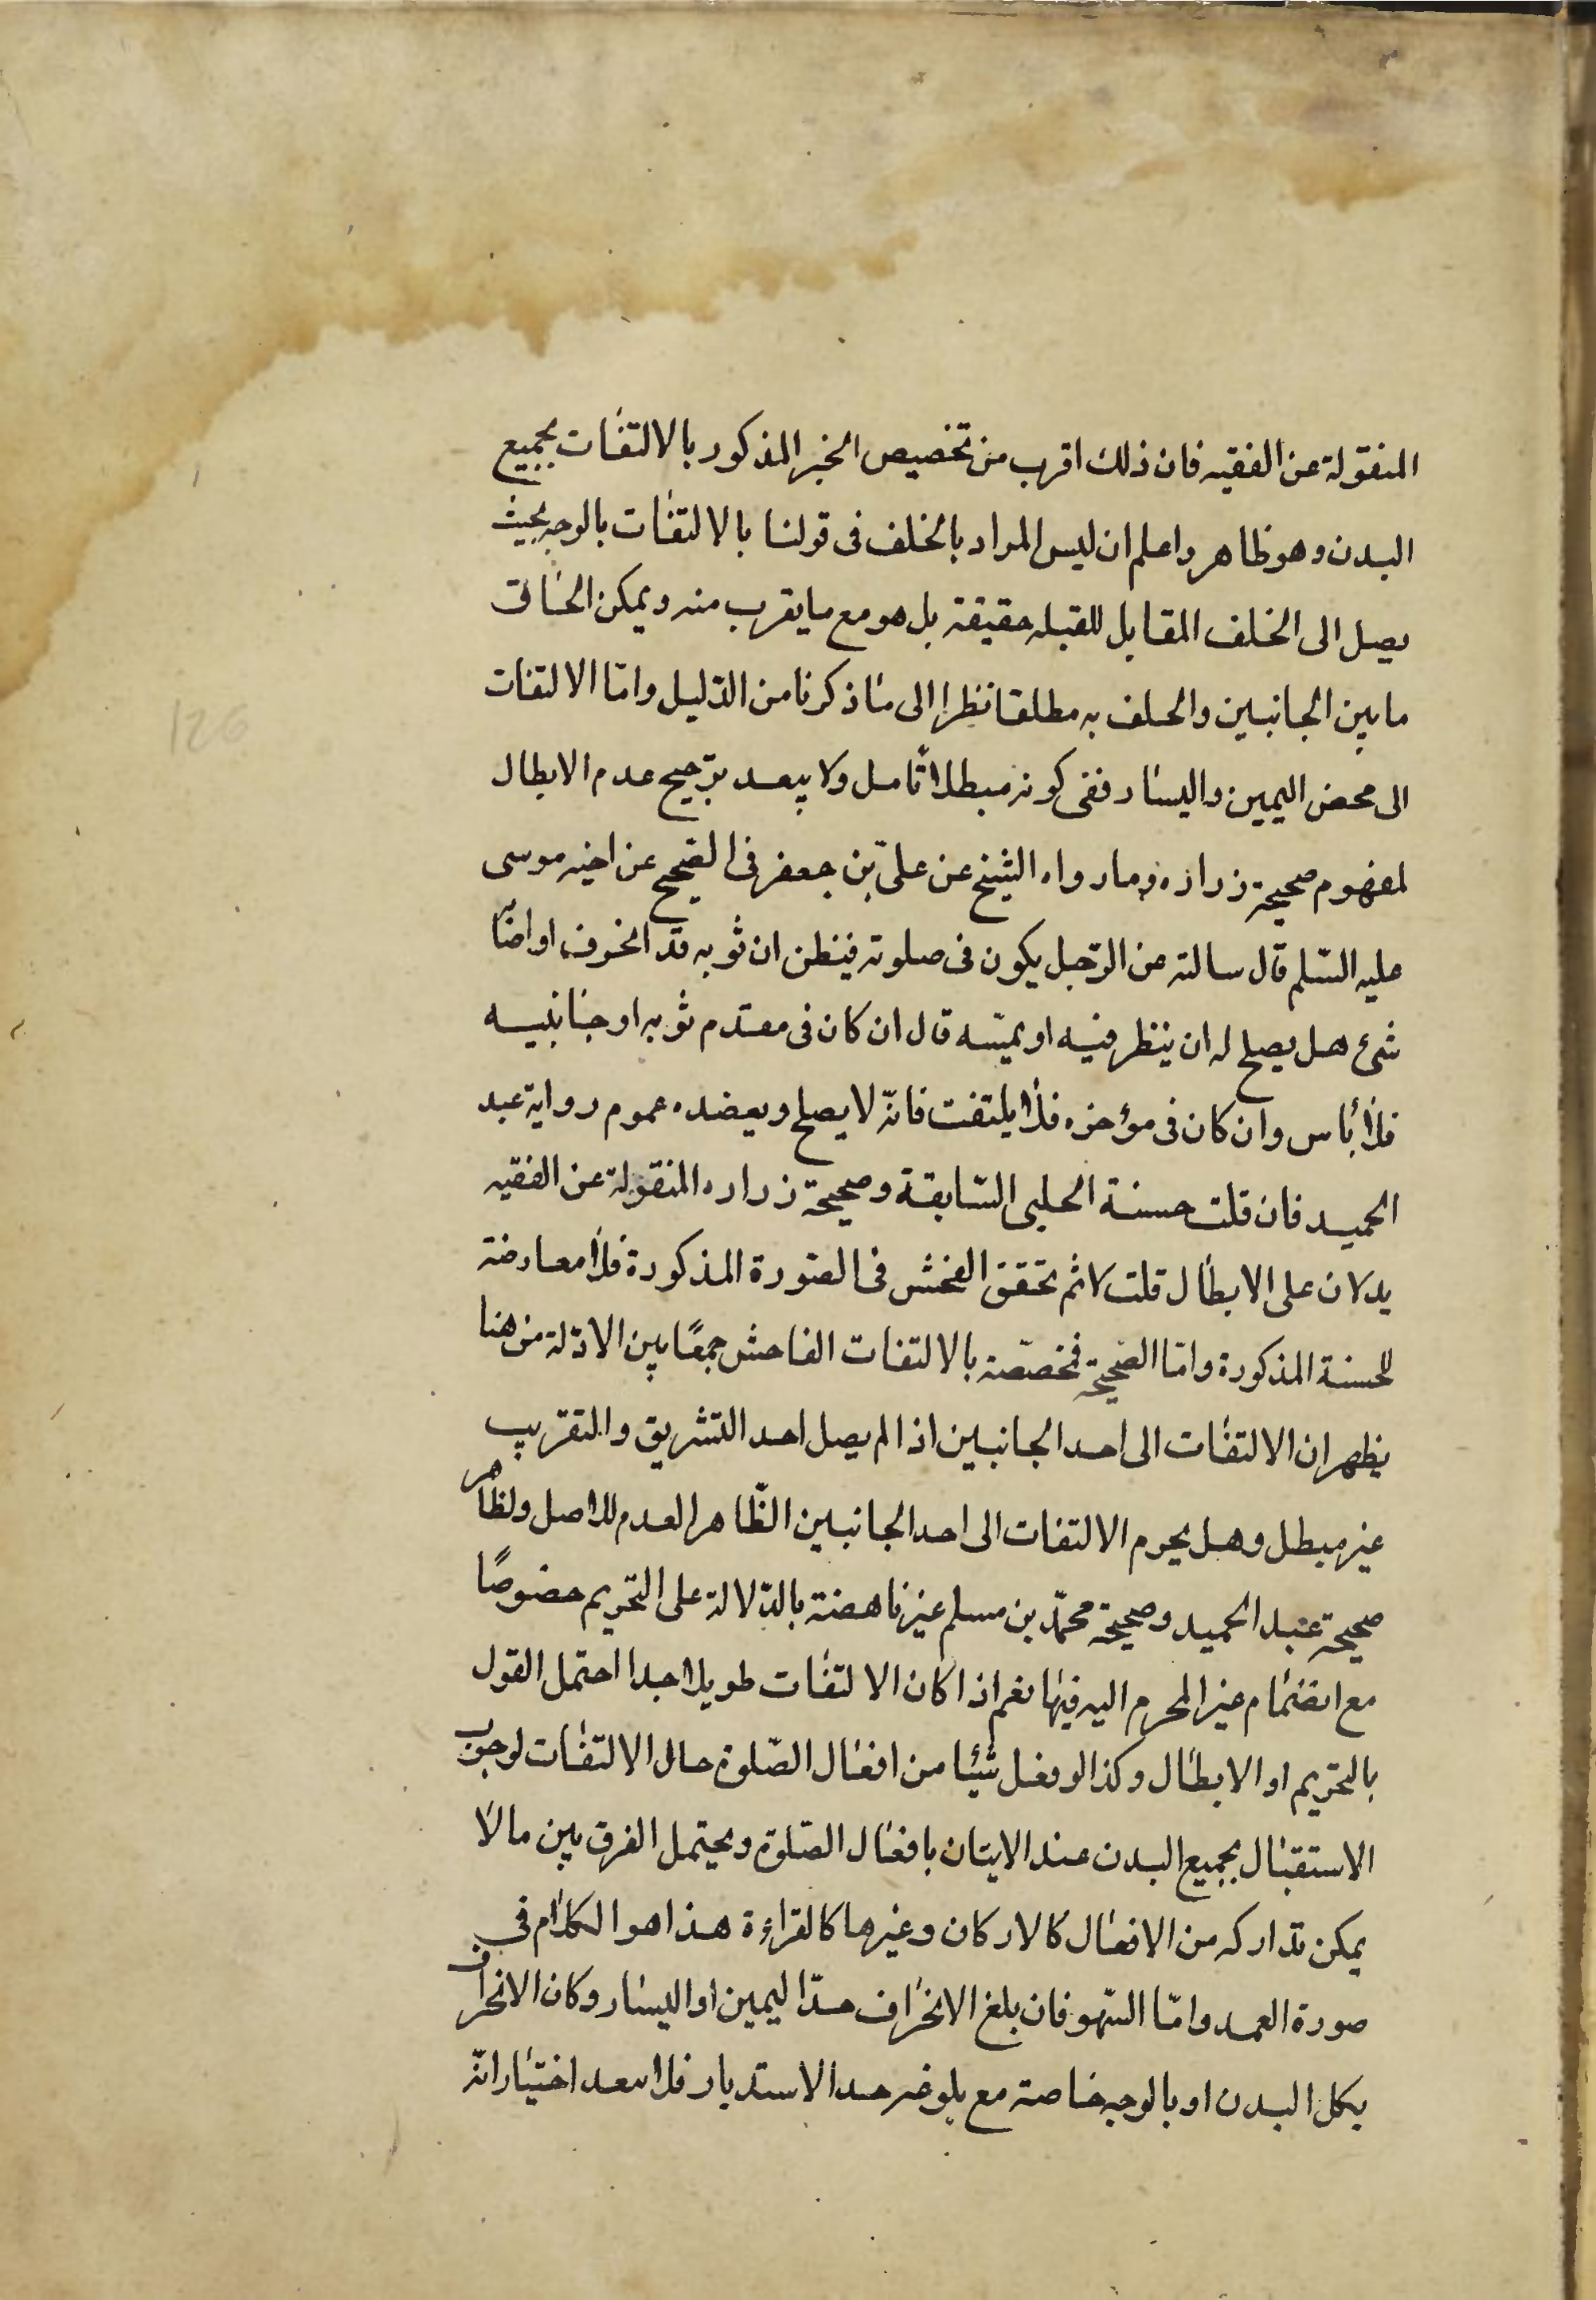 المنقولة عن الفقيه فان ذلك اقرب من تخصيص الخبر المذكور بالالتفات بجميع
البدن وهو ظاهر واعلم ان ليس المراد بالخلف فى قولنا بالالتفات بالوجه بحيث
يصل الى الخلف المقابل للقبله حقيقة بل هو مع ما يقرب منه ويمكن الحاق
ما بين الجانبين والخلف به مطلقا نظرا الى ما ذكرنا من الدّليل وامّا الالتفات
الى محض اليمين واليسار ففى كونه مبطلا تامل ولا يبعد ترجيح عدم الابطال
لمفهوم صحيحة زراره وما رواه الشيخ عن علىّ بن جعفر فى الصّحيح عن اخيه موسى
عليه السّلم قال سالته عن الرّجل يكون فى صلوته فيظن ان ثوبه قد انخرف او اصابه
شىء هل يصلح له ان ينظر فيه او يمسّه قال ان كان فى مقدم ثوبه او جانبيه
فلا باس وان كان فى مؤخره فلا يلتفت فانّه لا يصلح ويعضده عموم رواية عبد
الحميد فان قلت حسنة الحلبى السّابقة وصحيحة زراره المنقولة عن الفقيه
يدلان على الابطال قلت لا ثم تحقق الفحش فى الصّورة المذكورة فلا معارضة
للحسنة المذكورة وامّا الصّحيحة فمخصّصة بالالتفات الفاحش جمعًا بين الادّلة من هنا
يظهر ان الالتفات الى احد الجانبين اذا لم يصل احد التشريق والتغريب
غير مبطل وهل يحرم الالتفات الى احد الجانبين الظّاهر العدم للاصل ولظاهر
صحيحة عبد الحميد وصحيحة محمّد بن مسلم غير ناهضة بالدّلالة على التحريم خصوصًا
مع انضمام غير المحرم اليه فيها نعم اذا كان الالتفات طويلا جدا احتمل القول
بالتحريم او الابطال وكذا لو فعل شيئا من افعال الصّلوة حال الالتفات لوجوب
الاستقبال بجميع البدن عند الايتان بافعال الصّلوة ويحتمل الفرق بين ما لا
يمكن تداركه من الافعال كالاركان وغيرها كالقراءة هذا هو الكلام فى
صورة العمد وامّا السّهو فان بلغ الانحراف حدّ اليمين او اليسار وكان الانحراف
بكل البدن او بالوجه خاصة مع بلوغه حد الاستدبار فلا يبعد اختيار انّه